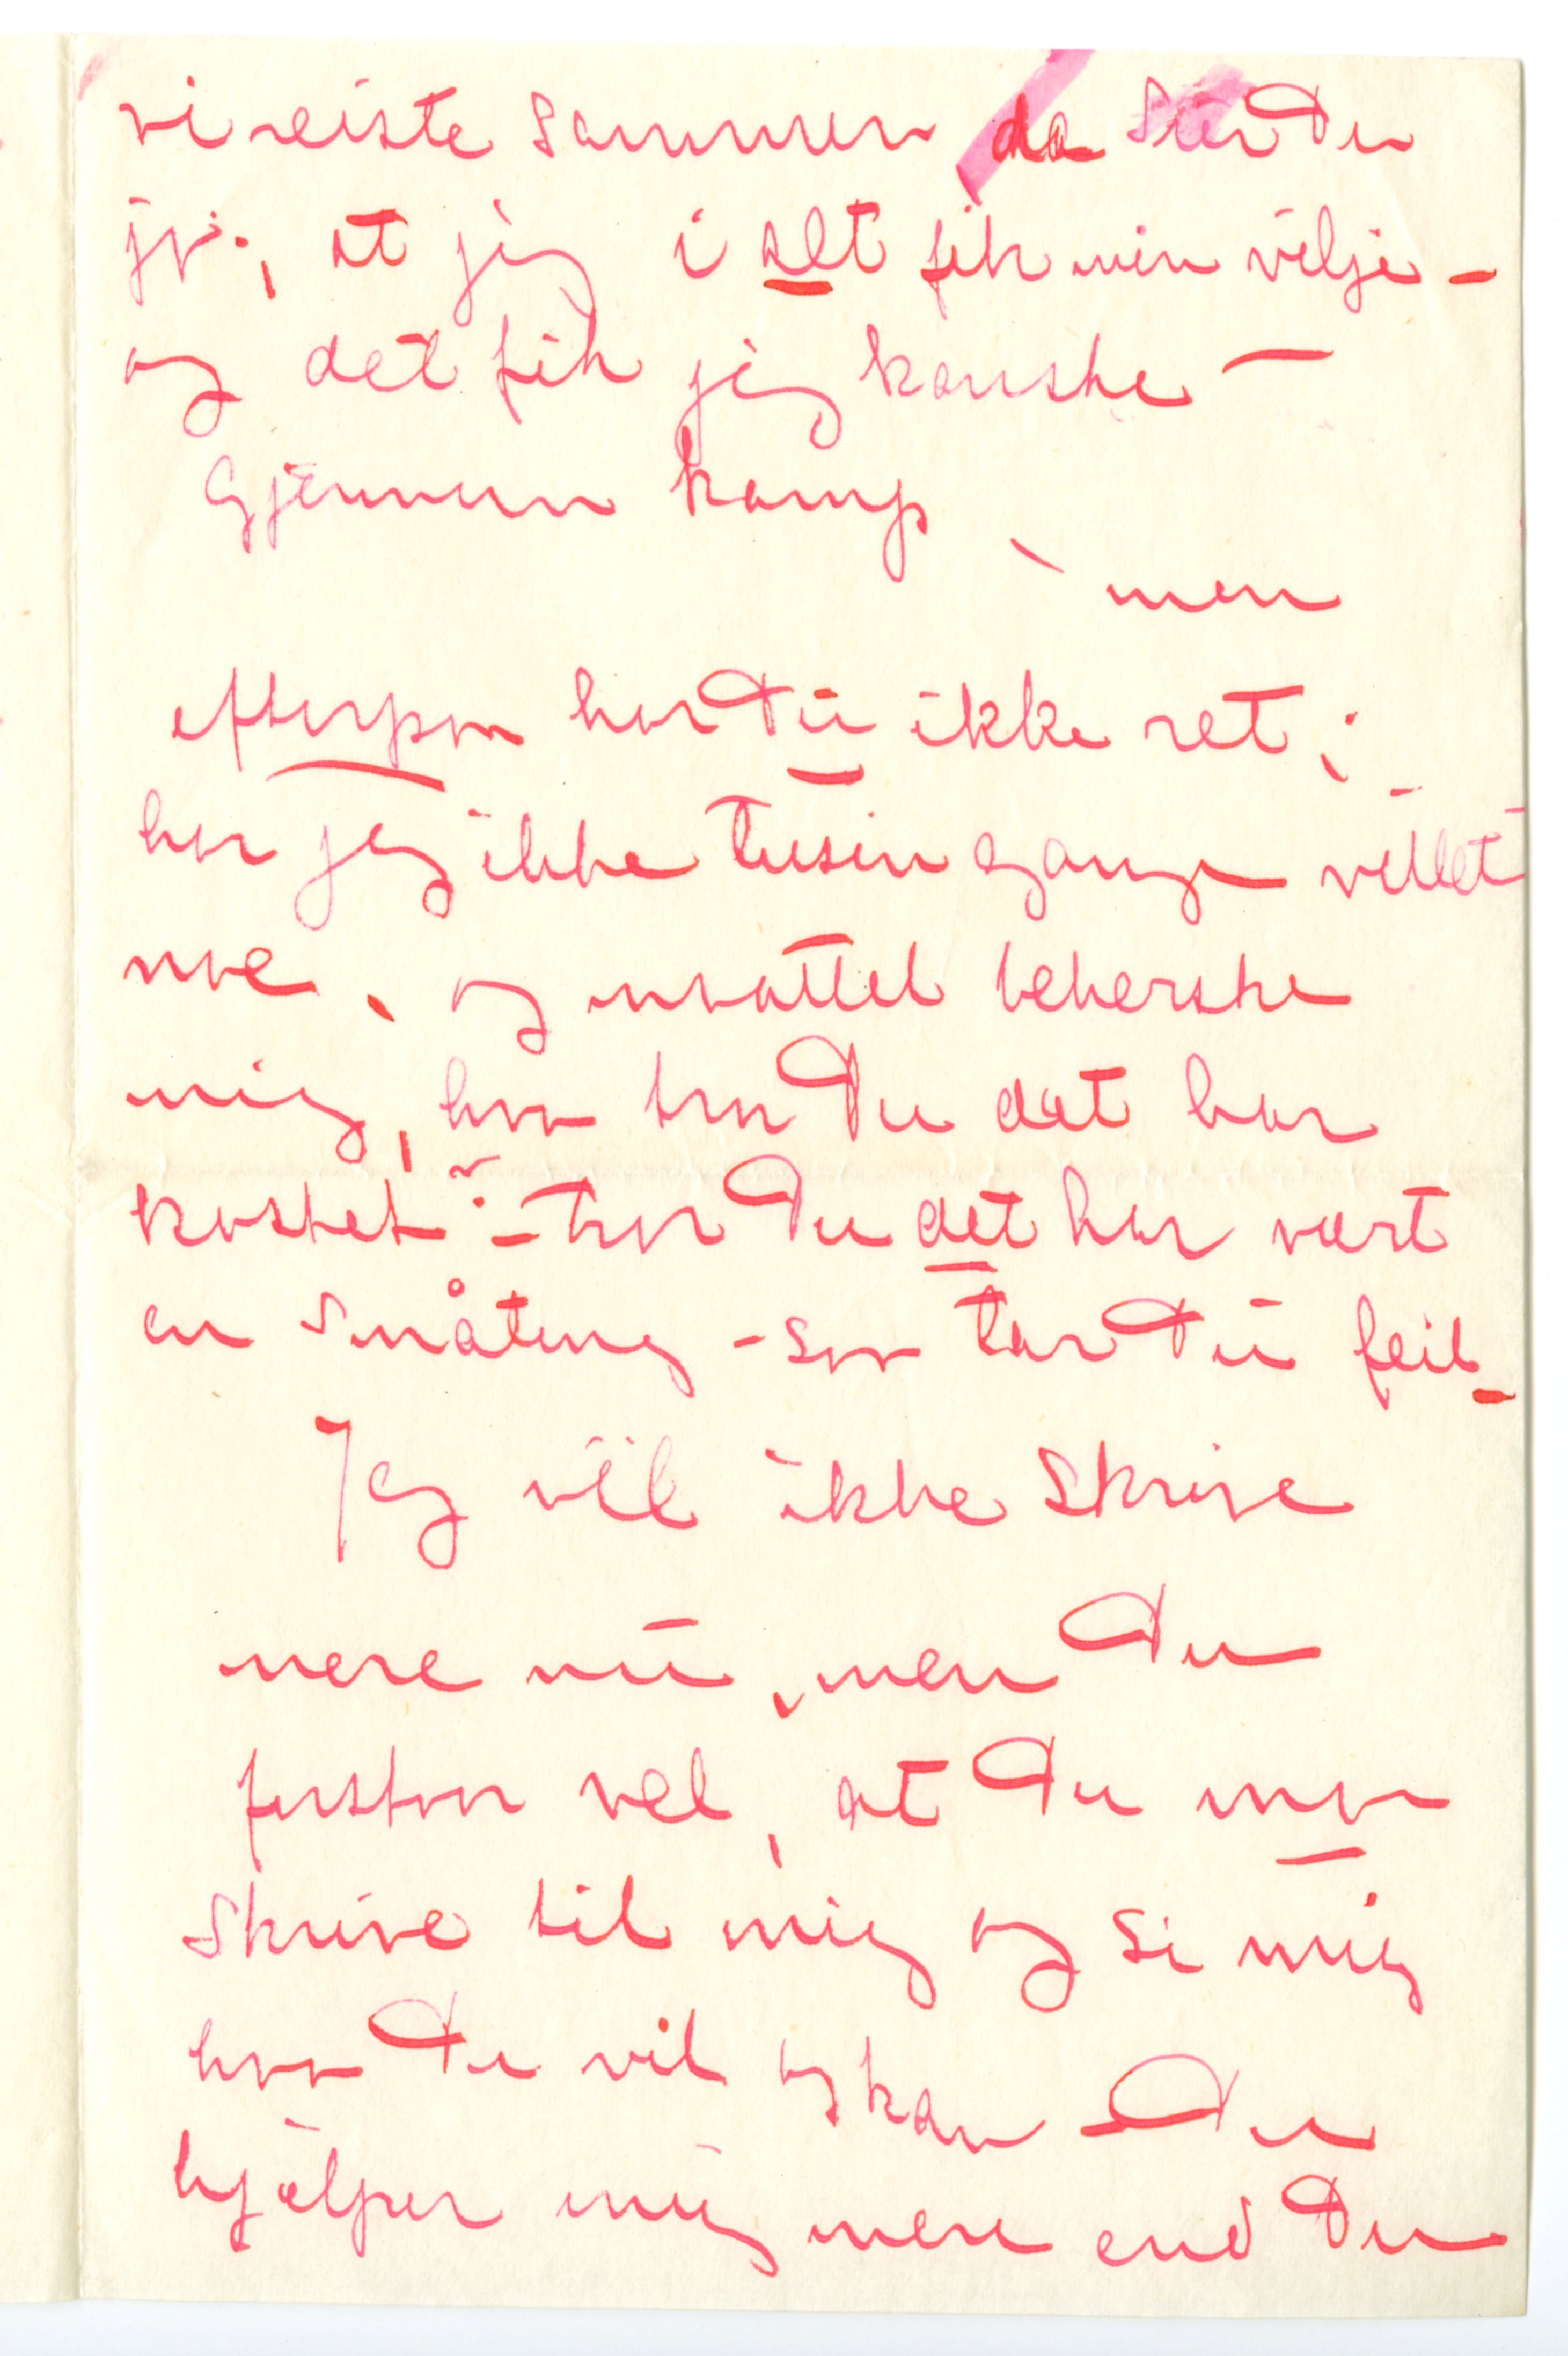 vi reiste sammen da sier Du
jo;, at jeg i alt fik min vilje –
og det fik jeg kanske —
Gjennem kamp
– men
efterpaa har Du ikke ret;
har jeg ikke tusin gange villet
noe, og maattet beherske
mig, hva tror Du det har
kostet? – tror Du det har vært
en småting – saa tar Du feil –
Jeg vil ikke skrive
mere nu, men Du
forstaar vel, at Du maa
skrive til mig og si mig
hva Du vil og kan – Du
hjælper mig mere end Du